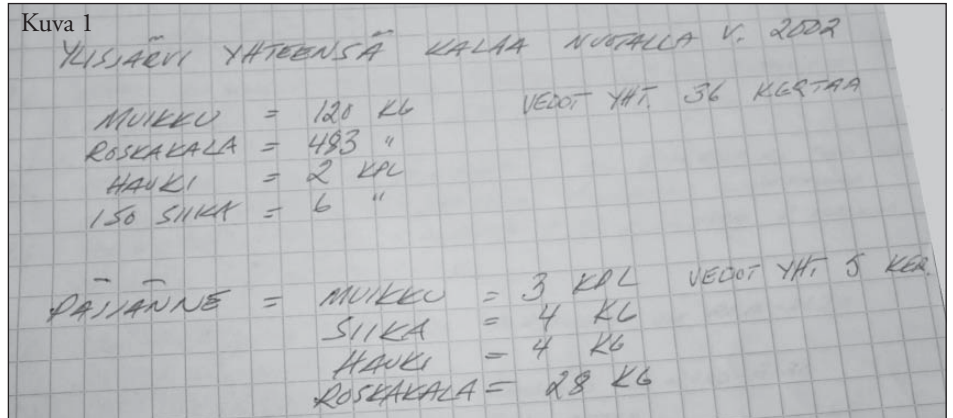 Kuva 1
YLISJÄRVI YHTEENSÄ KALAA NUOTALLA V. 2002
MUIKKU = 120 KG VEDOT YHT. 36 KERTAA
ROSKAKALA = 483 "
HAUKI = 2 KPL
ISO SIIKA = 6 "
PÄIJÄNNE = MUIKKU = 3 KPL VEDOT YHT. 5 KER.
SIIKA = 4 KG
HAUKI = 4 KG
ROSKAKALA = 28 KG